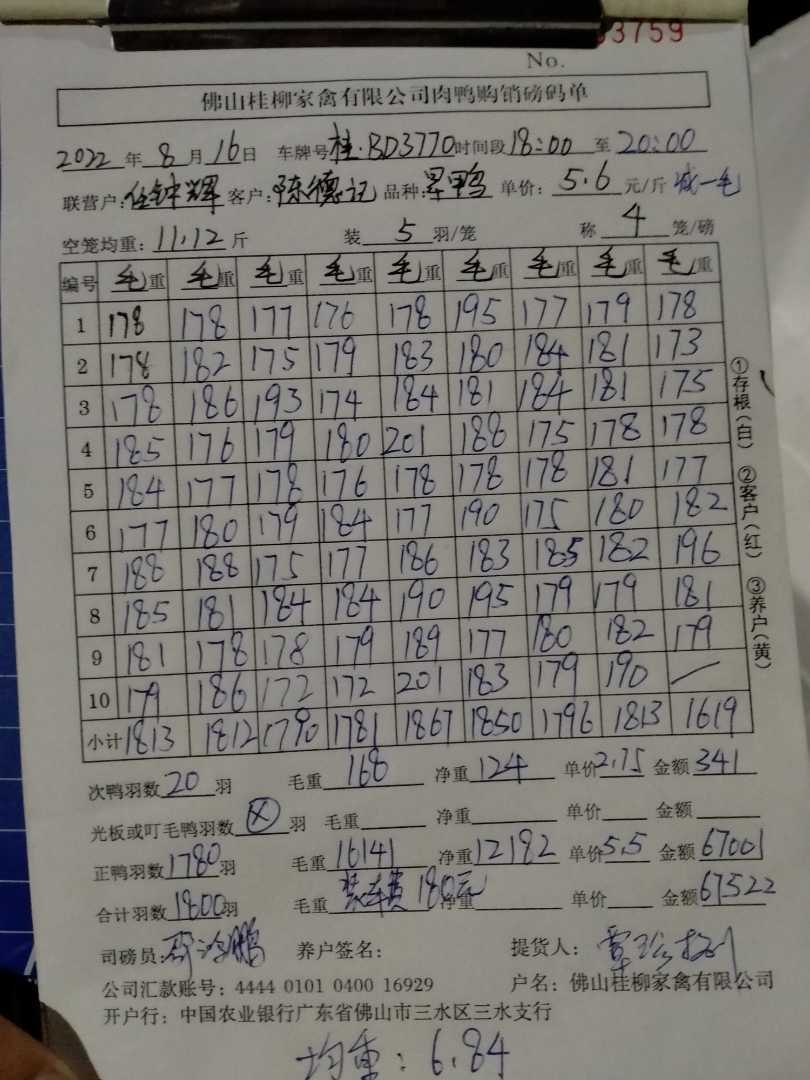 33759
No.
佛山桂柳家禽有限公司肉鸭购销磅码单
2022年8月16日 车牌号桂·BD3770时间段18:00至20:00
联营户:任钟辉 客户:陈德记 品种:旱鸭 单价:5.6元/斤 减一毛
空笼均重:11.12斤 装5羽/笼 称4笼/磅
编号 毛重 毛重 毛重 毛重 毛重 毛重 毛重 毛重 毛重
1 178 178 177 176 178 195 177 179 178
2 178 182 175 179 183 180 184 181 173
3 178 186 193 174 184 181 184 181 175
4 185 176 179 180 201 188 175 178 178
5 184 177 178 176 178 178 178 181 177
6 177 180 179 184 177 190 175 180 182
7 188 188 175 177 186 183 185 182 196
8 185 181 184 184 190 195 179 179 181
9 181 178 178 179 189 177 180 182 179
10 179 186 172 172 201 183 179 190 —
小计 1813 1812 1790 1781 1867 1850 1796 1813 1619
①存根(白) ②客户(红) ③养户(黄)
次鸭羽数20羽 毛重168 净重124 单价2.75 金额341
光板或叮毛鸭羽数X羽 毛重 净重 单价 金额
正鸭羽数1780羽 毛重16141 净重12182 单价5.5 金额67001
合计羽数1800羽 毛重装车费180元净重 单价 金额67522
司磅员: 养户签名: 提货人:
公司汇款账号:4444 0101 0400 16929 户名:佛山桂柳家禽有限公司
开户行:中国农业银行广东省佛山市三水区三水支行
均重:6.84